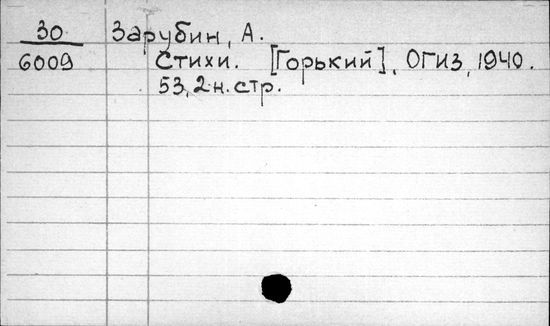 30 Зарубин, А.
6009 Стихи. [Горький], ОГИЗ, 1940.
53, 2 н. стр.